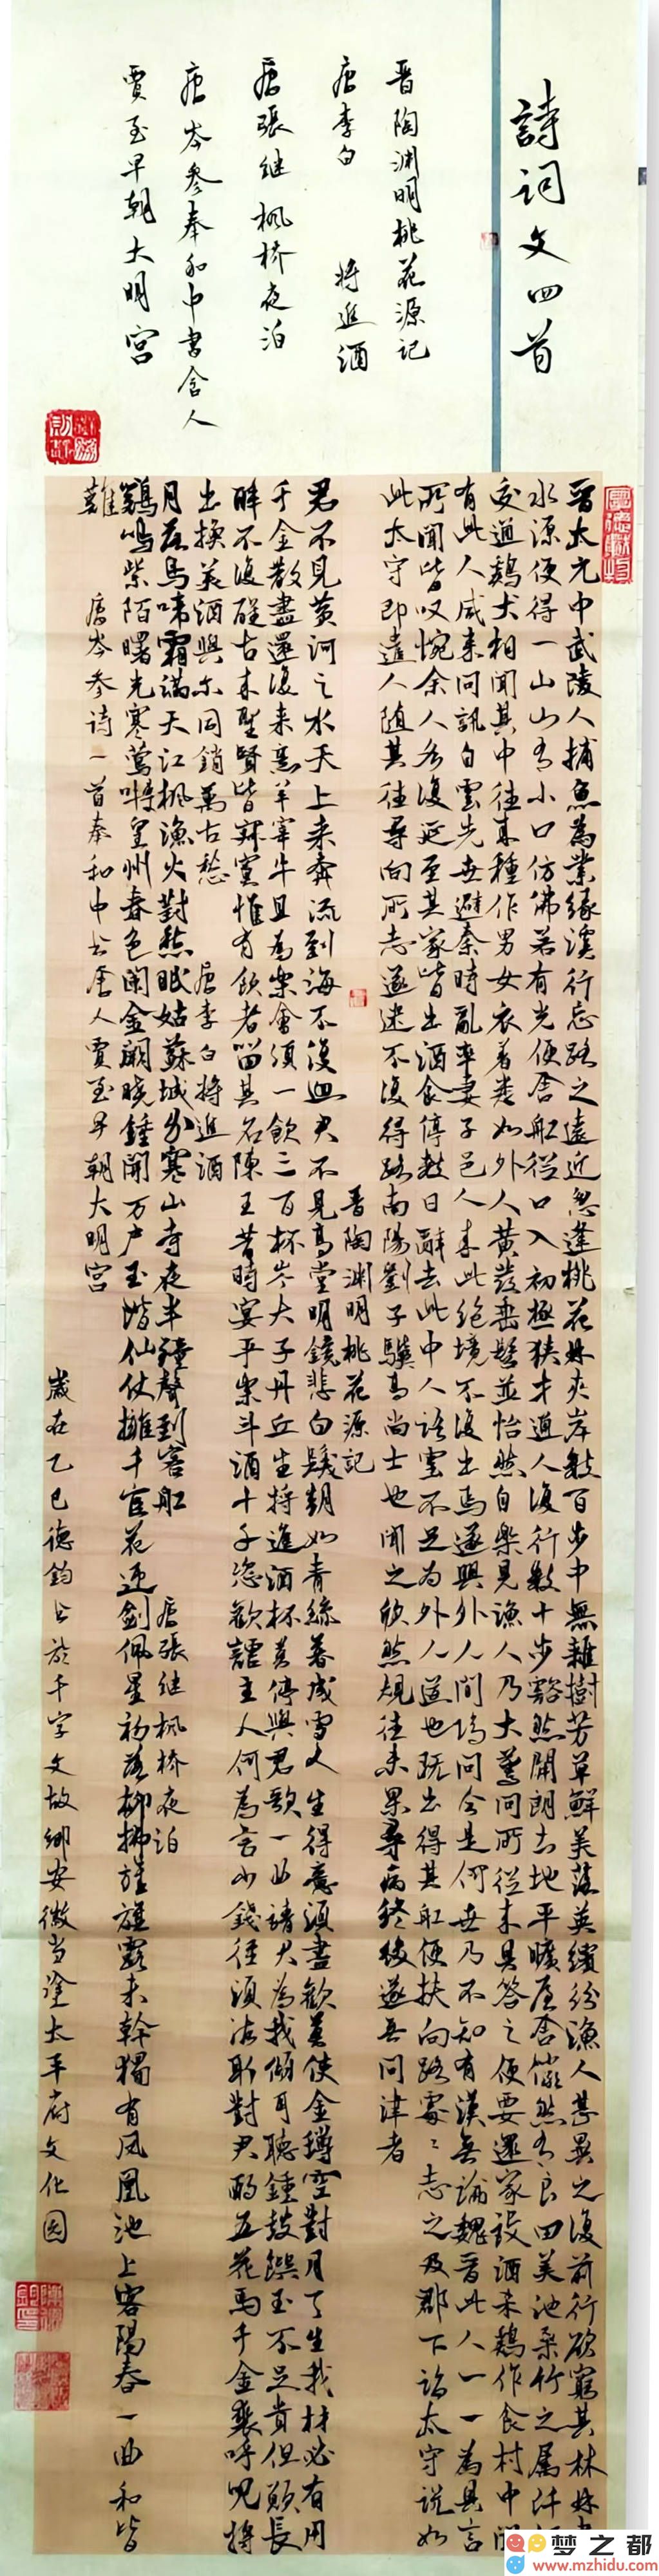 詩词文四首
晋陶渊明桃花源记
唐李白 将進酒
唐張继枫桥夜泊
唐岑参奉和中書舍人
賈至早朝大明宫
晋太元中武陵人捕魚為業缘溪行忘路之遠近忽逢桃花林夹岸数百步中無雜樹芳草鮮美落英缤纷漁人甚異之復前行欲窮其林林
水源便得一山山有小口仿佛若有光便舍船從口入初極狭才通人復行數十步豁然開朗土地平曠屋舍儼然有良田美池桑竹之属阡
交通鷄犬相聞其中往来種作男女衣着悉如外人黄发垂髫並怡然自樂見漁人乃大驚问所從来具答之便要還家設酒杀鷄作食村中聞
有此人咸来问訊自雲先世避秦時亂率妻子邑人来此绝境不復出焉遂與外人間隔问今是何世乃不知有漢無論魏晋此人一一為具言
所聞皆叹惋余人各復延至其家皆出酒食停数日辭去此中人語雲不足为外人道也既出得其船便扶向路處處志之及郡下詣太守說如
此太守即遣人随其往尋向所志遂迷不復得路南陽劉子驥高尚士也聞之欣然規往未果尋病終後遂無问津者
晋陶渊明桃花源記
君不見黄河之水天上来奔流到海不復迴君不見高堂明鏡悲白髮朝如青絲暮成雪人生得意須盡歡莫使金樽空對月天生我材必有用
千金散盡還復来烹羊宰牛且為樂會須一飲三百杯岑夫子丹丘生将進酒杯莫停與君歌一曲請君為我傾耳聽鐘鼓饌玉不足貴但願長
醉不復醒古来聖賢皆寂寞惟有飲者留其名陳王昔時宴平樂斗酒十千恣歡謔主人何為言少錢徑須沽取對君酌五花馬千金裘呼兒将
出换美酒與尔同銷萬古愁 唐李白将進酒
月落烏啼霜满天江枫漁火對愁眠姑蘇城外寒山寺夜半鐘聲到客船 唐張继枫桥夜泊
鷄鳴紫陌曙光寒莺囀皇州春色闌金闕曉鐘開万户玉階仙仗擁千官花迎劍佩星初落柳拂旌旗露未幹獨有凤凰池上客陽春一曲和皆
難
唐岑参诗一首奉和中书舍人賈至早朝大明宫
歲在乙巳德鈞书於千字文故鄉安徽当塗太平府文化园
梦之都
www.mzhidu.com